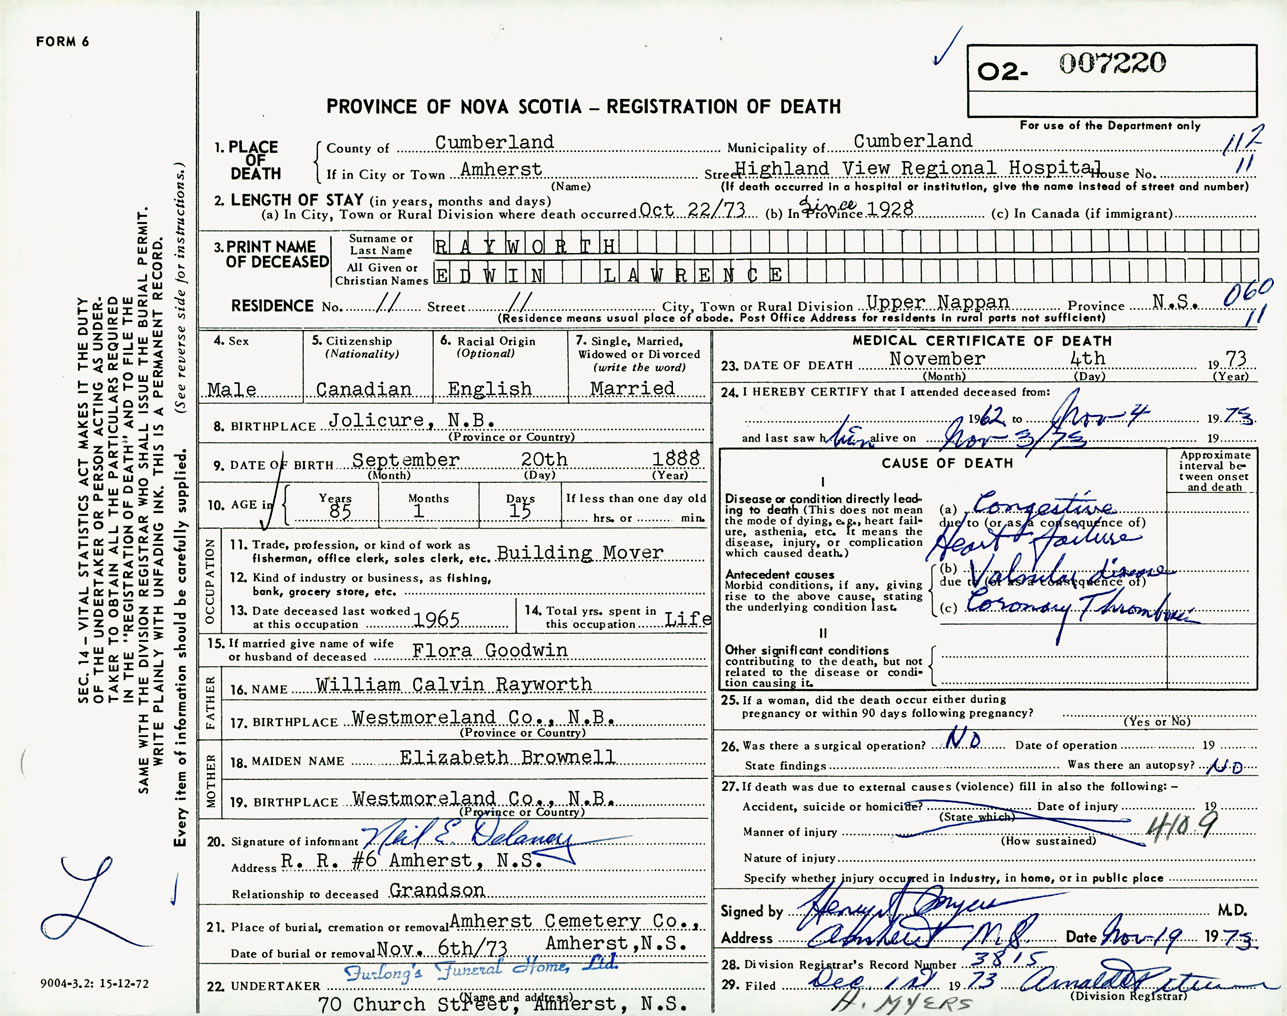 FORM 6
O2- 007220
PROVINCE OF NOVA SCOTIA – REGISTRATION OF DEATH
For use of the Department only
1. PLACE OF DEATH
County of Cumberland Municipality of Cumberland 112
If in City or Town Amherst Street Highland View Regional Hospital House No. 11
(Name) (If death occurred in a hospital or institution, give the name instead of street and number)
2. LENGTH OF STAY (in years, months and days)
(a) In City, Town or Rural Division where death occurred Oct 22/73 (b) In Province since 1928 (c) In Canada (if immigrant)
3. PRINT NAME OF DECEASED
Surname or Last Name RAYWORTH
All Given or Christian Names EDWIN LAWRENCE
RESIDENCE No. // Street // City, Town or Rural Division Upper Nappan Province N.S. 060
(Residence means usual place of abode. Post Office Address for residents in rural parts not sufficient) 11
4. Sex
Male
5. Citizenship (Nationality)
Canadian
6. Racial Origin (Optional)
English
7. Single, Married, Widowed or Divorced (write the word)
Married
8. BIRTHPLACE Jolicure, N.B.
(Province or Country)
9. DATE OF BIRTH September 20th 1888
(Month) (Day) (Year)
10. AGE in Years 85 Months 1 Days 15 If less than one day old hrs. or min.
OCCUPATION
11. Trade, profession, or kind of work as fisherman, office clerk, sales clerk, etc. Building Mover
12. Kind of industry or business, as fishing, bank, grocery store, etc.
13. Date deceased last worked at this occupation 1965
14. Total yrs. spent in this occupation Life
15. If married give name of wife or husband of deceased Flora Goodwin
FATHER
16. NAME William Calvin Rayworth
17. BIRTHPLACE Westmoreland Co., N.B.
(Province or Country)
MOTHER
18. MAIDEN NAME Elizabeth Brownell
19. BIRTHPLACE Westmoreland Co., N.B.
(Province or Country)
20. Signature of informant Neil E. Delaney
Address R. R. #6 Amherst, N.S.
Relationship to deceased Grandson
21. Place of burial, cremation or removal Amherst Cemetery Co.,
Date of burial or removal Nov. 6th/73 Amherst, N.S.
Furlong's Funeral Home, Ltd.
22. UNDERTAKER
(Name and address)
70 Church Street, Amherst, N.S.
MEDICAL CERTIFICATE OF DEATH
23. DATE OF DEATH November 4th 1973
(Month) (Day) (Year)
24. I HEREBY CERTIFY that I attended deceased from:
1962 to Nov 4 1973
and last saw him alive on Nov 3/73 19
CAUSE OF DEATH
Approximate interval between onset and death
I
Disease or condition directly leading to death (This does not mean the mode of dying, e.g., heart failure, asthenia, etc. It means the disease, injury, or complication which caused death.)
(a) Congestive
due to (or as a consequence of)
Heart failure
Antecedent causes
Morbid conditions, if any, giving rise to the above cause, stating the underlying condition last.
(b) Valvular disease
due to (or as a consequence of)
(c) Coronary Thrombosis
II
Other significant conditions
contributing to the death, but not related to the disease or condition causing it.
25. If a woman, did the death occur either during pregnancy or within 90 days following pregnancy?
(Yes or No)
26. Was there a surgical operation? No Date of operation 19
State findings Was there an autopsy? No
27. If death was due to external causes (violence) fill in also the following: –
Accident, suicide or homicide? Date of injury 19
(State which)
Manner of injury 4109
(How sustained)
Nature of injury
Specify whether injury occured in Industry, in home, or in public place
Signed by Henry Myers M.D.
Address Amherst N.S. Date Nov 19 1973
28. Division Registrar's Record Number 3815
29. Filed Dec 1st 1973
(Division Registrar)
H. MYERS
SEC. 14 – VITAL STATISTICS ACT MAKES IT THE DUTY
OF THE UNDERTAKER OR PERSON ACTING AS UNDER-
TAKER TO OBTAIN ALL THE PARTICULARS REQUIRED
IN THE "REGISTRATION OF DEATH" AND TO FILE THE
SAME WITH THE DIVISION REGISTRAR WHO SHALL ISSUE THE BURIAL PERMIT.
WRITE PLAINLY WITH UNFADING INK. THIS IS A PERMANENT RECORD.
Every item of information should be carefully supplied. (See reverse side for instructions.)
L
9004-3.2: 15-12-72